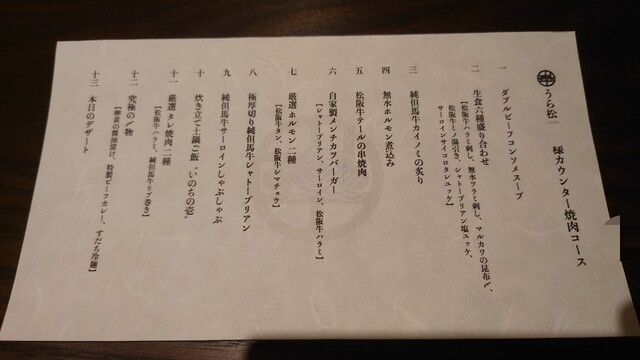 うら松
様カウンター焼肉コース
一 ダブルビーフコンソメスープ
二 生食六種盛り合わせ
【松阪牛ハラミ刺し、無水ツラミ刺し、マルカワの昆布〆、
松阪牛ミノ湯引き、シャトーブリアン塩ユッケ、
サーロインサイコロタレユッケ】
三 純但馬牛カイノミの炙り
四 無水ホルモン煮込み
五 松阪牛テールの串焼肉
六 自家製メンチカツバーガー
【シャトーブリアン、サーロイン、松阪牛ハラミ】
七 厳選ホルモン二種
【松阪牛タン、松阪牛シマチョウ】
八 極厚切り純但馬牛シャトーブリアン
九 純但馬牛サーロインしゃぶしゃぶ
十 炊き立て土鍋ご飯〝いのちの壱〟
十一 厳選タレ焼肉二種
【松阪牛ハラミ、純但馬牛リブ巻き】
十二 究極の〆物
【卵黄の醤油漬け、特製ビーフカレー、すだち冷麺】
十三 本日のデザート